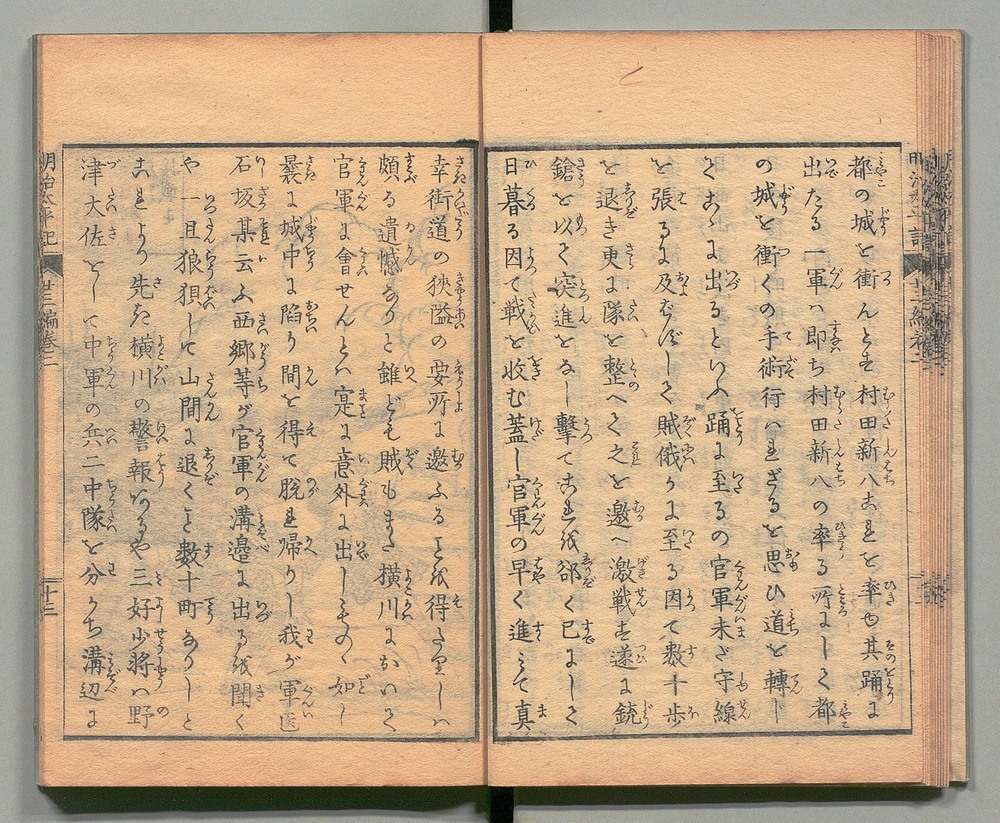 都の城を衝んとす村田新八これを率ゐ其踊に
出たる一軍ハ即ち村田新八の率る所にして都
の城を衝くの手術行ハれざるを思ひ道を轉し
てこゝに出るといふ踊に至るの官軍未だ守線
を張るに及バずして賊俄かに至る因て數十歩
を退き更に隊を整へて之を邀へ激戦す遂に銃
鎗を以て突進をなし擊てこれを郤く已にして
日暮る因て戦を收む蓋し官軍の早く進みて真
幸街道の狹隘の要所に邀ふるを得たりしハ
頗る遺憾なりと雖ども賊もまた横川において
官軍に會せんとハ寔に意外に出しものゝ如し
曩に城中に陷り間を得て脱れ帰りし我が軍医
石坂某云ふ西郷等が官軍の溝邉に出るを聞く
や一旦狼狽して山間に退くこと數十町なりしと
これより先き横川の警報いたるや三好少將ハ野
津大佐をして中軍の兵二中隊を分かち溝辺に
明治太平記
廿三編巻二
十三